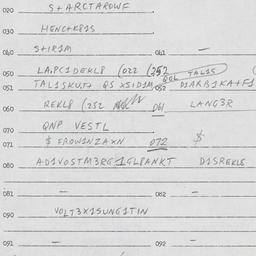 020 S+ARCTAROWF
030 HENC+K81S
040 S+IR1M 041 —
050 LA.PC1DEKL8 (022 (252
051 TAL1SKUT+ QS XSID1M, 052 D1ARB1KA+F1
060 REKL8 (252 061 LANG3R
070 QNP VESTL
071 $ FROW1NZAXN 072 $
080 AD1VOSTM3RG1GL8ANKT D1SREKL8
081 — 082 —
090 VOLT3X1SUNG1T1N
091 — 092 —